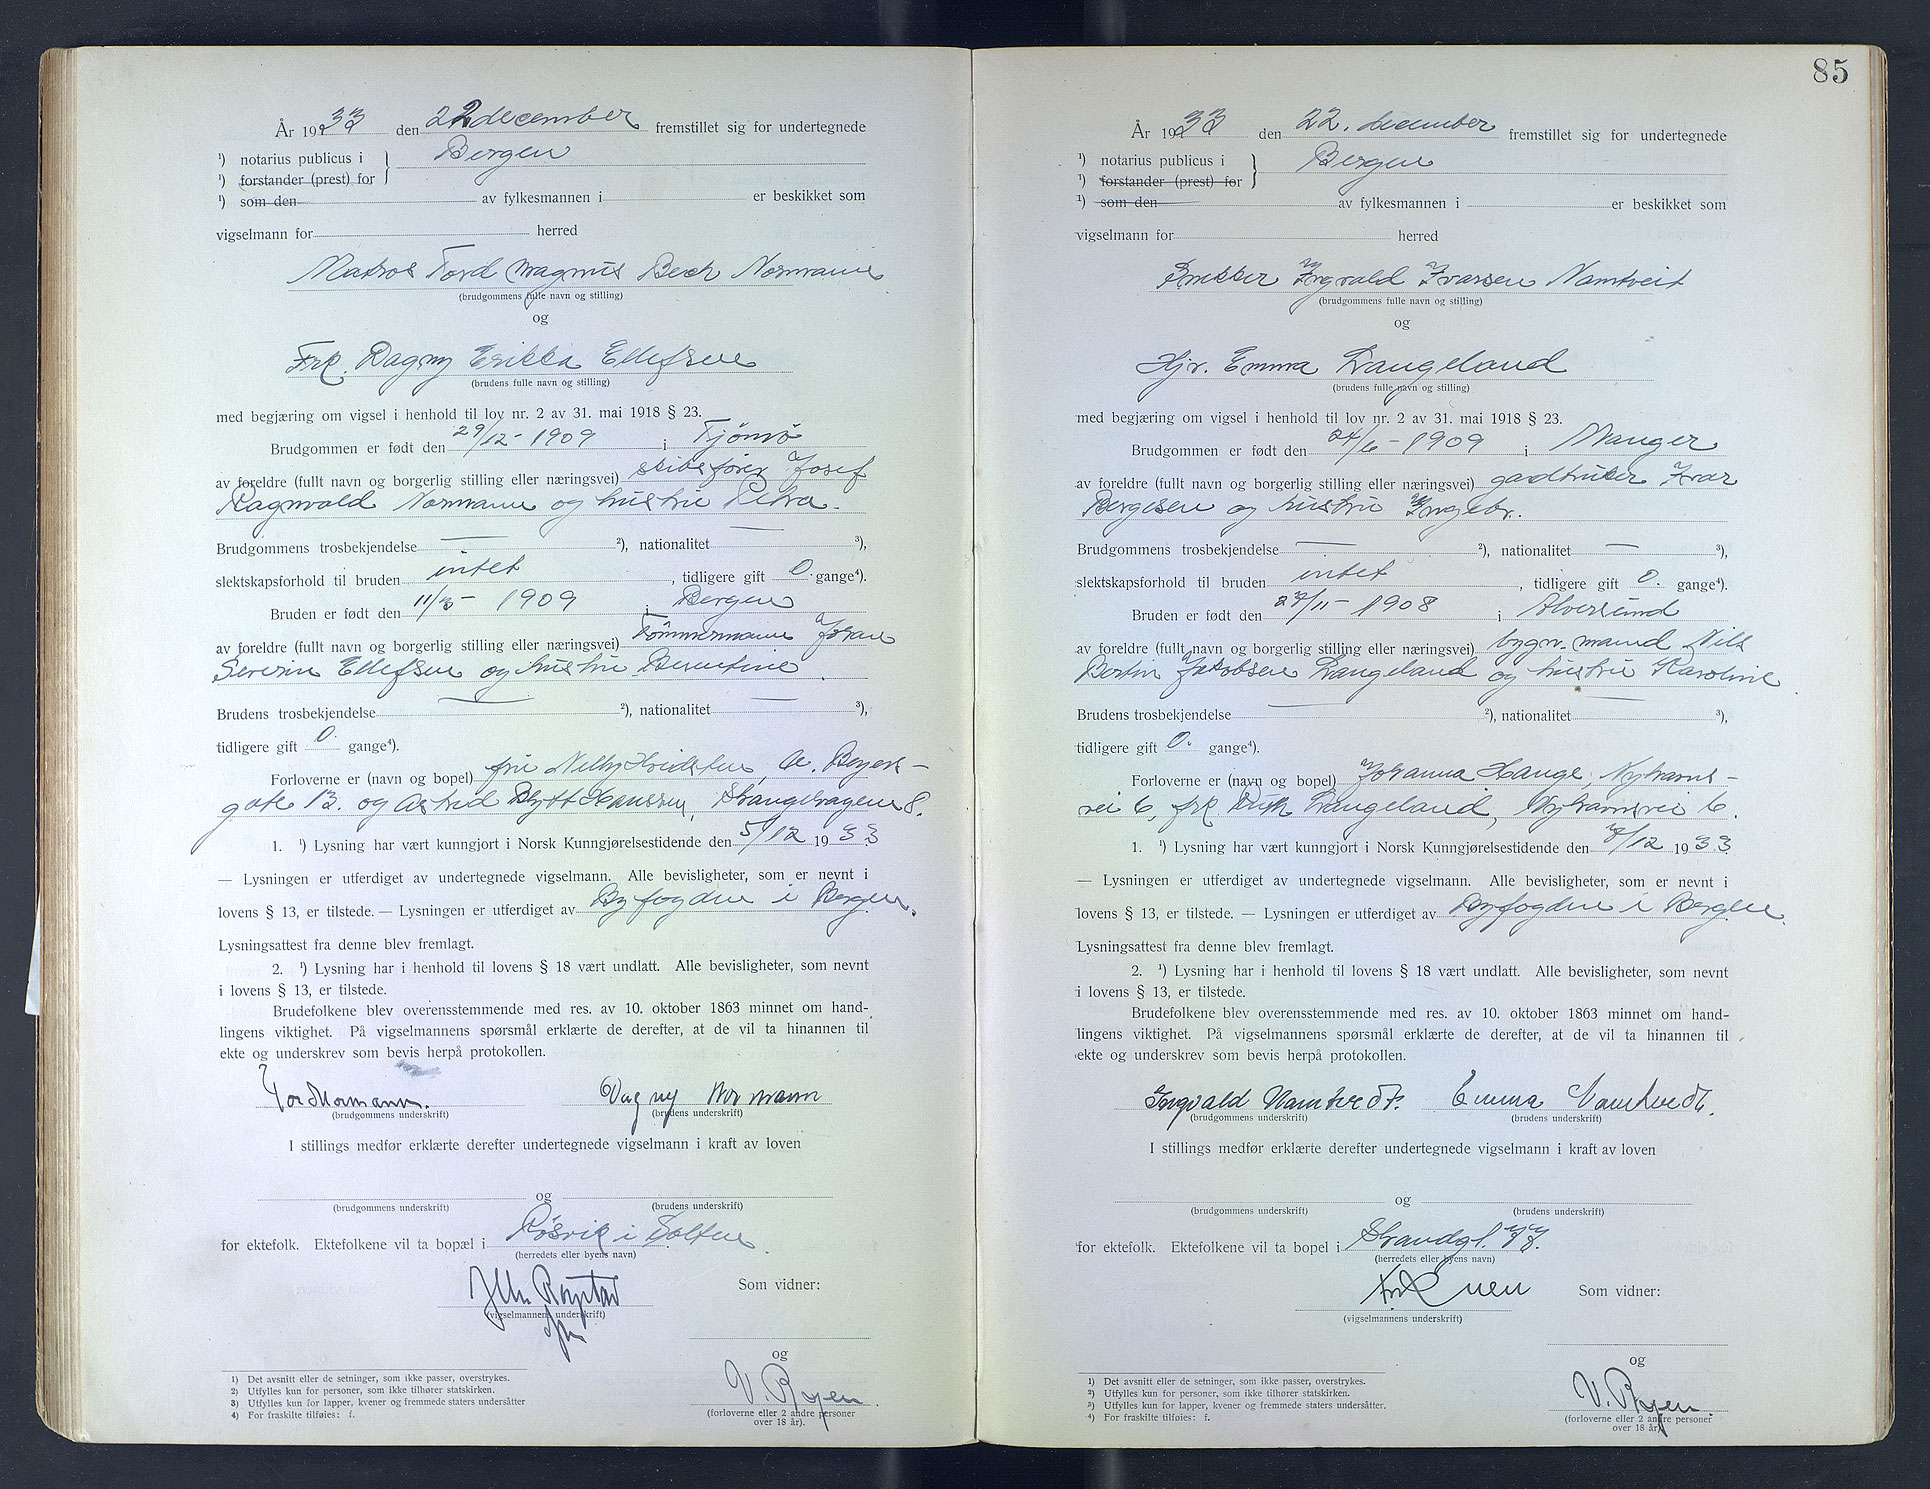 År 1933 den 22 december fremstillet sig for undertegnede
¹) notarius publicus i Bergen
¹) forstander (prest) for
¹) som den av fylkesmannen i er beskikket som
vigselmann for herred
Matros Tord Magnus Bech Normann
(brudgommens fulle navn og stilling)
og
Frk. Dagny Erikka Ellefsen
(brudens fulle navn og stilling)
med begjæring om vigsel i henhold til lov nr. 2 av 31. mai 1918 § 23.
Brudgommen er født den 29/12 - 1909 i Tjömö
av foreldre (fullt navn og borgerlig stilling eller næringsvei) skibsförer Josef
Ragnvald Normann og hustru Petra.
Brudgommens trosbekjendelse — ²), nationalitet — ³),
slektskapsforhold til bruden intet, tidligere gift 0. gange⁴).
Bruden er født den 11/3 - 1909 i Bergen
av foreldre (fullt navn og borgerlig stilling eller næringsvei) Tömmermann Johan
Severin Ellefsen og hustru Berntine
Brudens trosbekjendelse — ²), nationalitet — ³),
tidligere gift 0. gange⁴).
Forloverne er (navn og bopel) fru Nelly Hvidsten, A. Beyers-
gate 13. og Astrid Blytt Hanssen, Strangehagen 8.
1. ¹) Lysning har vært kunngjort i Norsk Kunngjørelsestidende den 5/12 1933
— Lysningen er utferdiget av undertegnede vigselmann. Alle bevisligheter, som er nevnt i
lovens § 13, er tilstede. — Lysningen er utferdiget av Byfogden i Bergen.
Lysningsattest fra denne blev fremlagt.
2. ¹) Lysning har i henhold til lovens § 18 vært undlatt. Alle bevisligheter, som nevnt
i lovens § 13, er tilstede.
Brudefolkene blev overensstemmende med res. av 10. oktober 1863 minnet om hand-
lingens viktighet. På vigselmannens spørsmål erklærte de derefter, at de vil ta hinannen til
ekte og underskrev som bevis herpå protokollen.
Tord Normann. Dagny Normann
(brudgommens underskrift) (brudens underskrift)
I stillings medfør erklærte derefter undertegnede vigselmann i kraft av loven
og
(brudgommens underskrift) (brudens underskrift)
for ektefolk. Ektefolkene vil ta bopæl i Røsvik i Salten.
(herredets eller byens navn)
Som vidner:
(vigselmannens underskrift)
og
V. Ryen
(forloverne eller 2 andre personer
over 18 år).
1) Det avsnitt eller de setninger, som ikke passer, overstrykes.
2) Utfylles kun for personer, som ikke tilhører statskirken.
3) Utfylles kun for lapper, kvener og fremmede staters undersåtter
4) For fraskilte tilføies: f.
85
År 1933 den 22. december fremstillet sig for undertegnede
¹) notarius publicus i Bergen
¹) forstander (prest) for
¹) som den av fylkesmannen i er beskikket som
vigselmann for herred
Snekker Ingvald Ivarsen Namtveit
(brudgommens fulle navn og stilling)
og
Hjv. Emma Langeland
(brudens fulle navn og stilling)
med begjæring om vigsel i henhold til lov nr. 2 av 31. mai 1918 § 23.
Brudgommen er født den 24/6 - 1909 i Manger
av foreldre (fullt navn og borgerlig stilling eller næringsvei) gardbruker Ivar
Bergesen og hustru Ingebr.
Brudgommens trosbekjendelse — ²), nationalitet — ³),
slektskapsforhold til bruden intet, tidligere gift 0. gange⁴).
Bruden er født den 27/11 - 1908 i Alversund
av foreldre (fullt navn og borgerlig stilling eller næringsvei) bygn. mand Nils
Bertin Jakobsen Langeland og hustru Karoline
Brudens trosbekjendelse — ²), nationalitet — ³),
tidligere gift 0. gange⁴).
Forloverne er (navn og bopel) Johanna Hauge, Nyhavns-
vei 6, frk. Ruth Langeland, Nyhavnsvei 6.
1. ¹) Lysning har vært kunngjort i Norsk Kunngjørelsestidende den 7/12 1933
— Lysningen er utferdiget av undertegnede vigselmann. Alle bevisligheter, som er nevnt i
lovens § 13, er tilstede. — Lysningen er utferdiget av Byfogden i Bergen
Lysningsattest fra denne blev fremlagt.
2. ¹) Lysning har i henhold til lovens § 18 vært undlatt. Alle bevisligheter, som nevnt
i lovens § 13, er tilstede.
Brudefolkene blev overensstemmende med res. av 10. oktober 1863 minnet om hand-
lingens viktighet. På vigselmannens spørsmål erklærte de derefter, at de vil ta hinannen til
ekte og underskrev som bevis herpå protokollen.
Ingvald Namtvedt. Emma Namtvedt.
(brudgommens underskrift) (brudens underskrift)
I stillings medfør erklærte derefter undertegnede vigselmann i kraft av loven
og
(brudgommens underskrift) (brudens underskrift)
for ektefolk. Ektefolkene vil ta bopel i Strandgt.
(herredets eller byens navn)
Som vidner:
(vigselmannens underskrift)
og
V. Ryen.
(forloverne eller 2 andre personer
over 18 år).
1) Det avsnitt eller de setninger, som ikke passer, overstrykes.
2) Utfylles kun for personer, som ikke tilhører statskirken.
3) Utfylles kun for lapper, kvener og fremmede staters undersåtter.
4) For fraskilte tilføies: f.